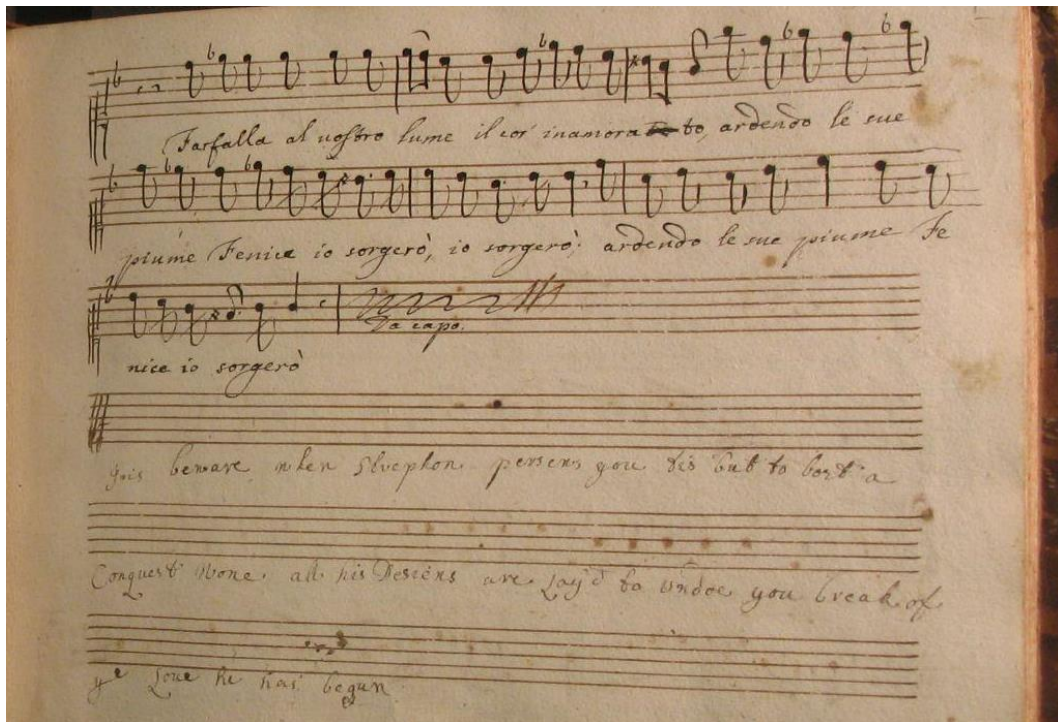 Farfalla al vostro lume il cor inamorato, ardendo le sue
piume Fenice io sorgerò, io sorgerò, ardendo le sue piume Fe
Da capo.
nice io sorgerò
beware when Strephon persues you tis but to bost a
Conquest Wone. all his Desiens are Lay'd to undoe you break of
ye Love he has begun